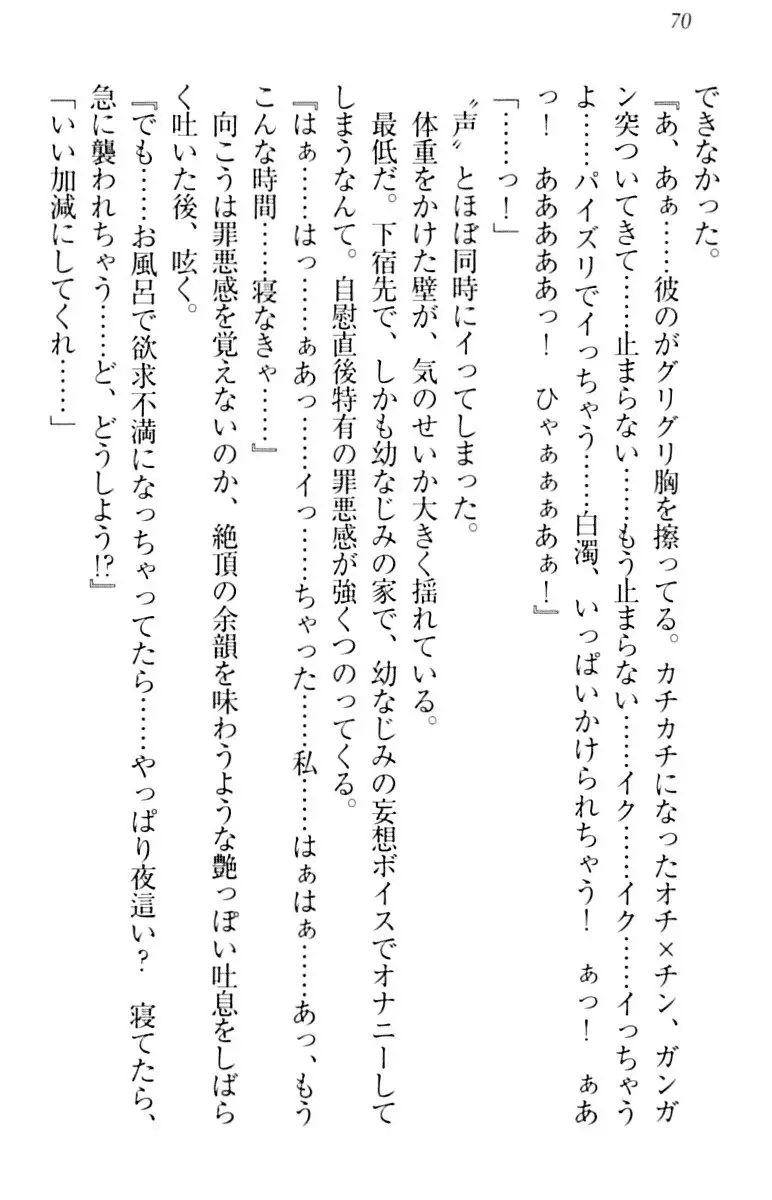 70
できなかった。
『あ、あぁ……彼のがグリグリ胸を擦ってる。カチカチになったオチ×チン、ガンガ
ン突ついてきて……止まらない……もう止まらない……イク……イク……イっちゃう
よ……パイズリでイっちゃう……白濁、いっぱいかけられちゃう！　ぁっ！　ぁあ
っ！　あああああっ！　ひゃぁぁぁあぁ！』
「……っ！」
〝声〟とほぼ同時にイってしまった。
体重をかけた壁が、気のせいか大きく揺れている。
最低だ。下宿先で、しかも幼なじみの家で、幼なじみの妄想ボイスでオナニーして
しまうなんて。自慰直後特有の罪悪感が強くつのってくる。
『はぁ……はっ……ぁあっ……イっ……ちゃった……私……はぁはぁ……あっ、もう
こんな時間……寝なきゃ……』
向こうは罪悪感を覚えないのか、絶頂の余韻を味わうような艶っぽい吐息をしばら
く吐いた後、呟く。
『でも……お風呂で欲求不満になっちゃってたら……やっぱり夜這い？　寝てたら、
急に襲われちゃう……ど、どうしよう!?』
「いい加減にしてくれ……」